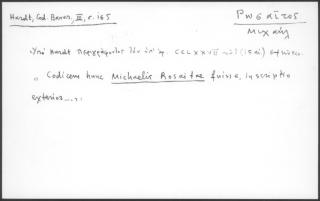 Hardt, Cod. Bavar. III, σ. 165
Ρωσαῖτος
Μιχαήλ
Ὑπὸ Hardt περιγράφονται τὸν ὑπ' ἀρ. CCLXXVII
Codicem hunc Michaelis Rosaitae fuisse, inscriptio
exterior....